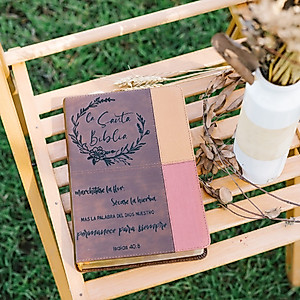 La Santa
Biblia
Marchítase la flor,
Sécase la hierba,
MAS LA PALABRA DEL DIOS NUESTRO
permanece para siempre
Isaías 40:8